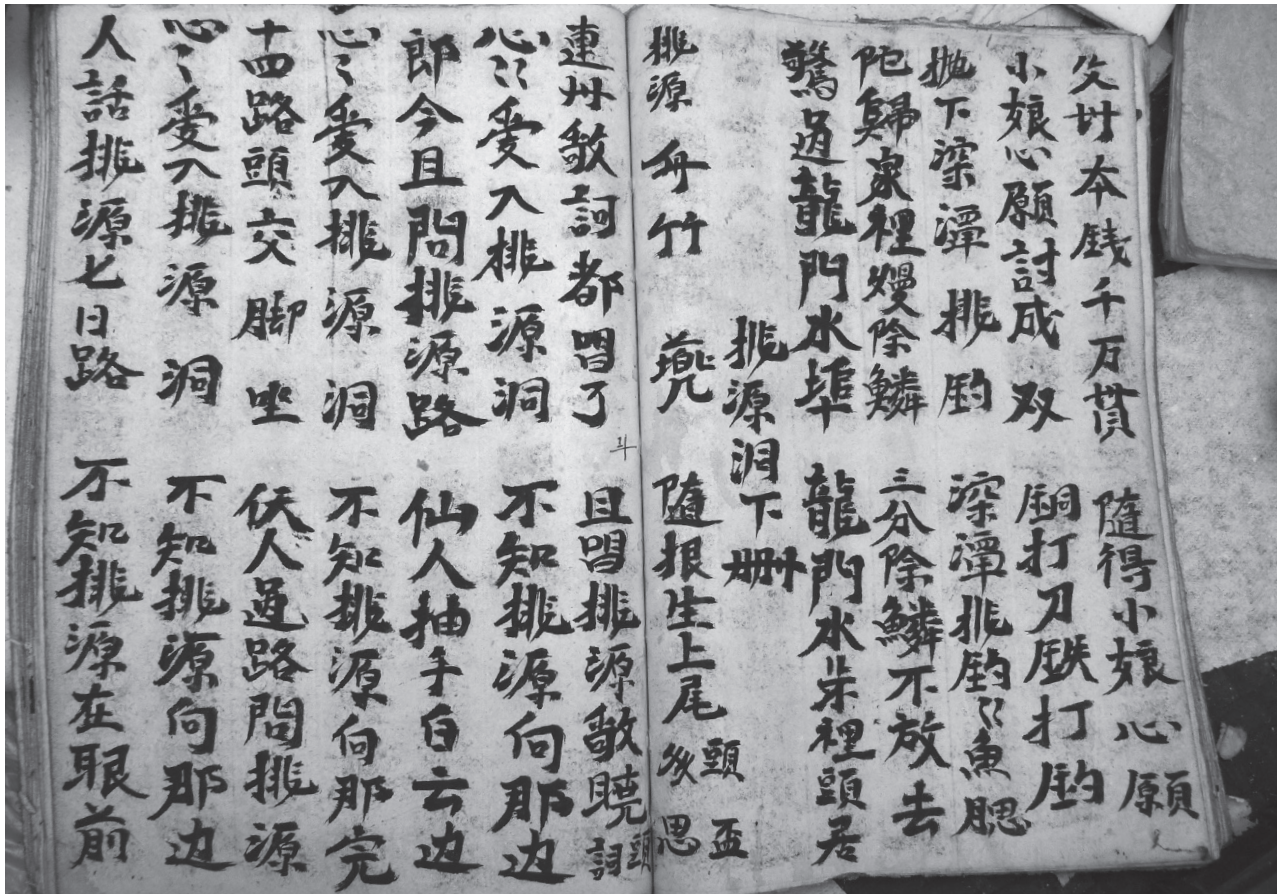 父母本銭千万貫 隨得小娘心願
小娘心願討成双 銅打刀鉄打鈎
抛下深潭挑鈎 深潭挑鈎〻魚腮
陀歸家裡慢除鱗 三分除鱗不放去
驚過龍門水埠 龍門水裡頭居
挑源洞下冊
挑源舟竹 隨根生上尾 頭
連州歌詞都唱了 且唱挑源歌曉 頭
心〻愛入挑源洞 不知挑源向那边
郎今且問挑源路 仙人抽手白云边
心〻愛入挑源洞 不知挑源向那完
十四路頭交脚坐 伏人過路問挑源
心〻愛入挑源洞 不知挑源向那边
人話挑源七日路 不知挑源在眼前